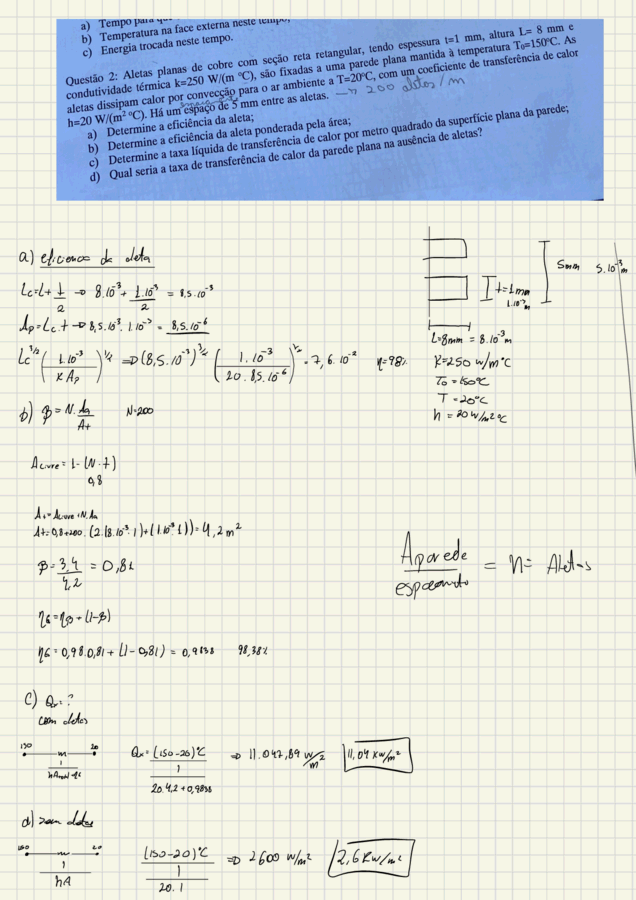 a) Tempo para que
b) Temperatura na face externa neste tempo;
c) Energia trocada neste tempo.
Questão 2: Aletas planas de cobre com seção reta retangular, tendo espessura t=1 mm, altura L= 8 mm e
condutividade térmica k=250 W/(m °C), são fixadas a uma parede plana mantida à temperatura T₀=150°C. As
aletas dissipam calor por convecção para o ar ambiente a T=20°C, com um coeficiente de transferência de calor
h=20 W/(m² °C). Há um espaço de 5 mm entre as aletas. → 200 aletas/m
a) Determine a eficiência da aleta;
b) Determine a eficiência da aleta ponderada pela área;
c) Determine a taxa líquida de transferência de calor por metro quadrado da superfície plana da parede;
d) Qual seria a taxa de transferência de calor da parede plana na ausência de aletas?
a) eficiencia da aleta
Lc=L+t/2 → 8.10⁻³+1.10⁻³/2 = 8,5.10⁻³
Ap=Lc.t → 8,5.10⁻³.1.10⁻³ = 8,5.10⁻⁶
Lc^3/2 (1.10⁻³/K Ap)^1/2 ⇒ (8,5.10⁻³)^3/2 (1.10⁻³/20.8,5.10⁻⁶)^1/2 = 7,6.10⁻² η=98%
t=1mm
1.10⁻³m
5mm 5.10⁻³m
L=8mm = 8.10⁻³m
K=250 W/m°C
T₀=150°C
T=20°C
h=20W/m²°C
b) β=N.Aa/At N=200
Alivre = 1-(N.t)
0,8
At=Alivre+N.Aa
At=0,8+200.(2.(8.10⁻³.1)+(1.10⁻³.1))=4,2m²
β=3,4/4,2 = 0,81
ηG=ηβ+(1-β)
ηG=0,98.0,81+(1-0,81) = 0,9838 98,38%
Aparede/espaçamento = N= Aletas
c) Q=?
com aletas
150 20
Q=(150-20)°C/(1/20.4,2+0,9838) ⇒ 11.047,89 W/m² 11,04 KW/m²
d) sem aletas
150 20
1/hA
(150-20)°C/(1/20.1) ⇒ 2600 W/m² 2,6KW/m²